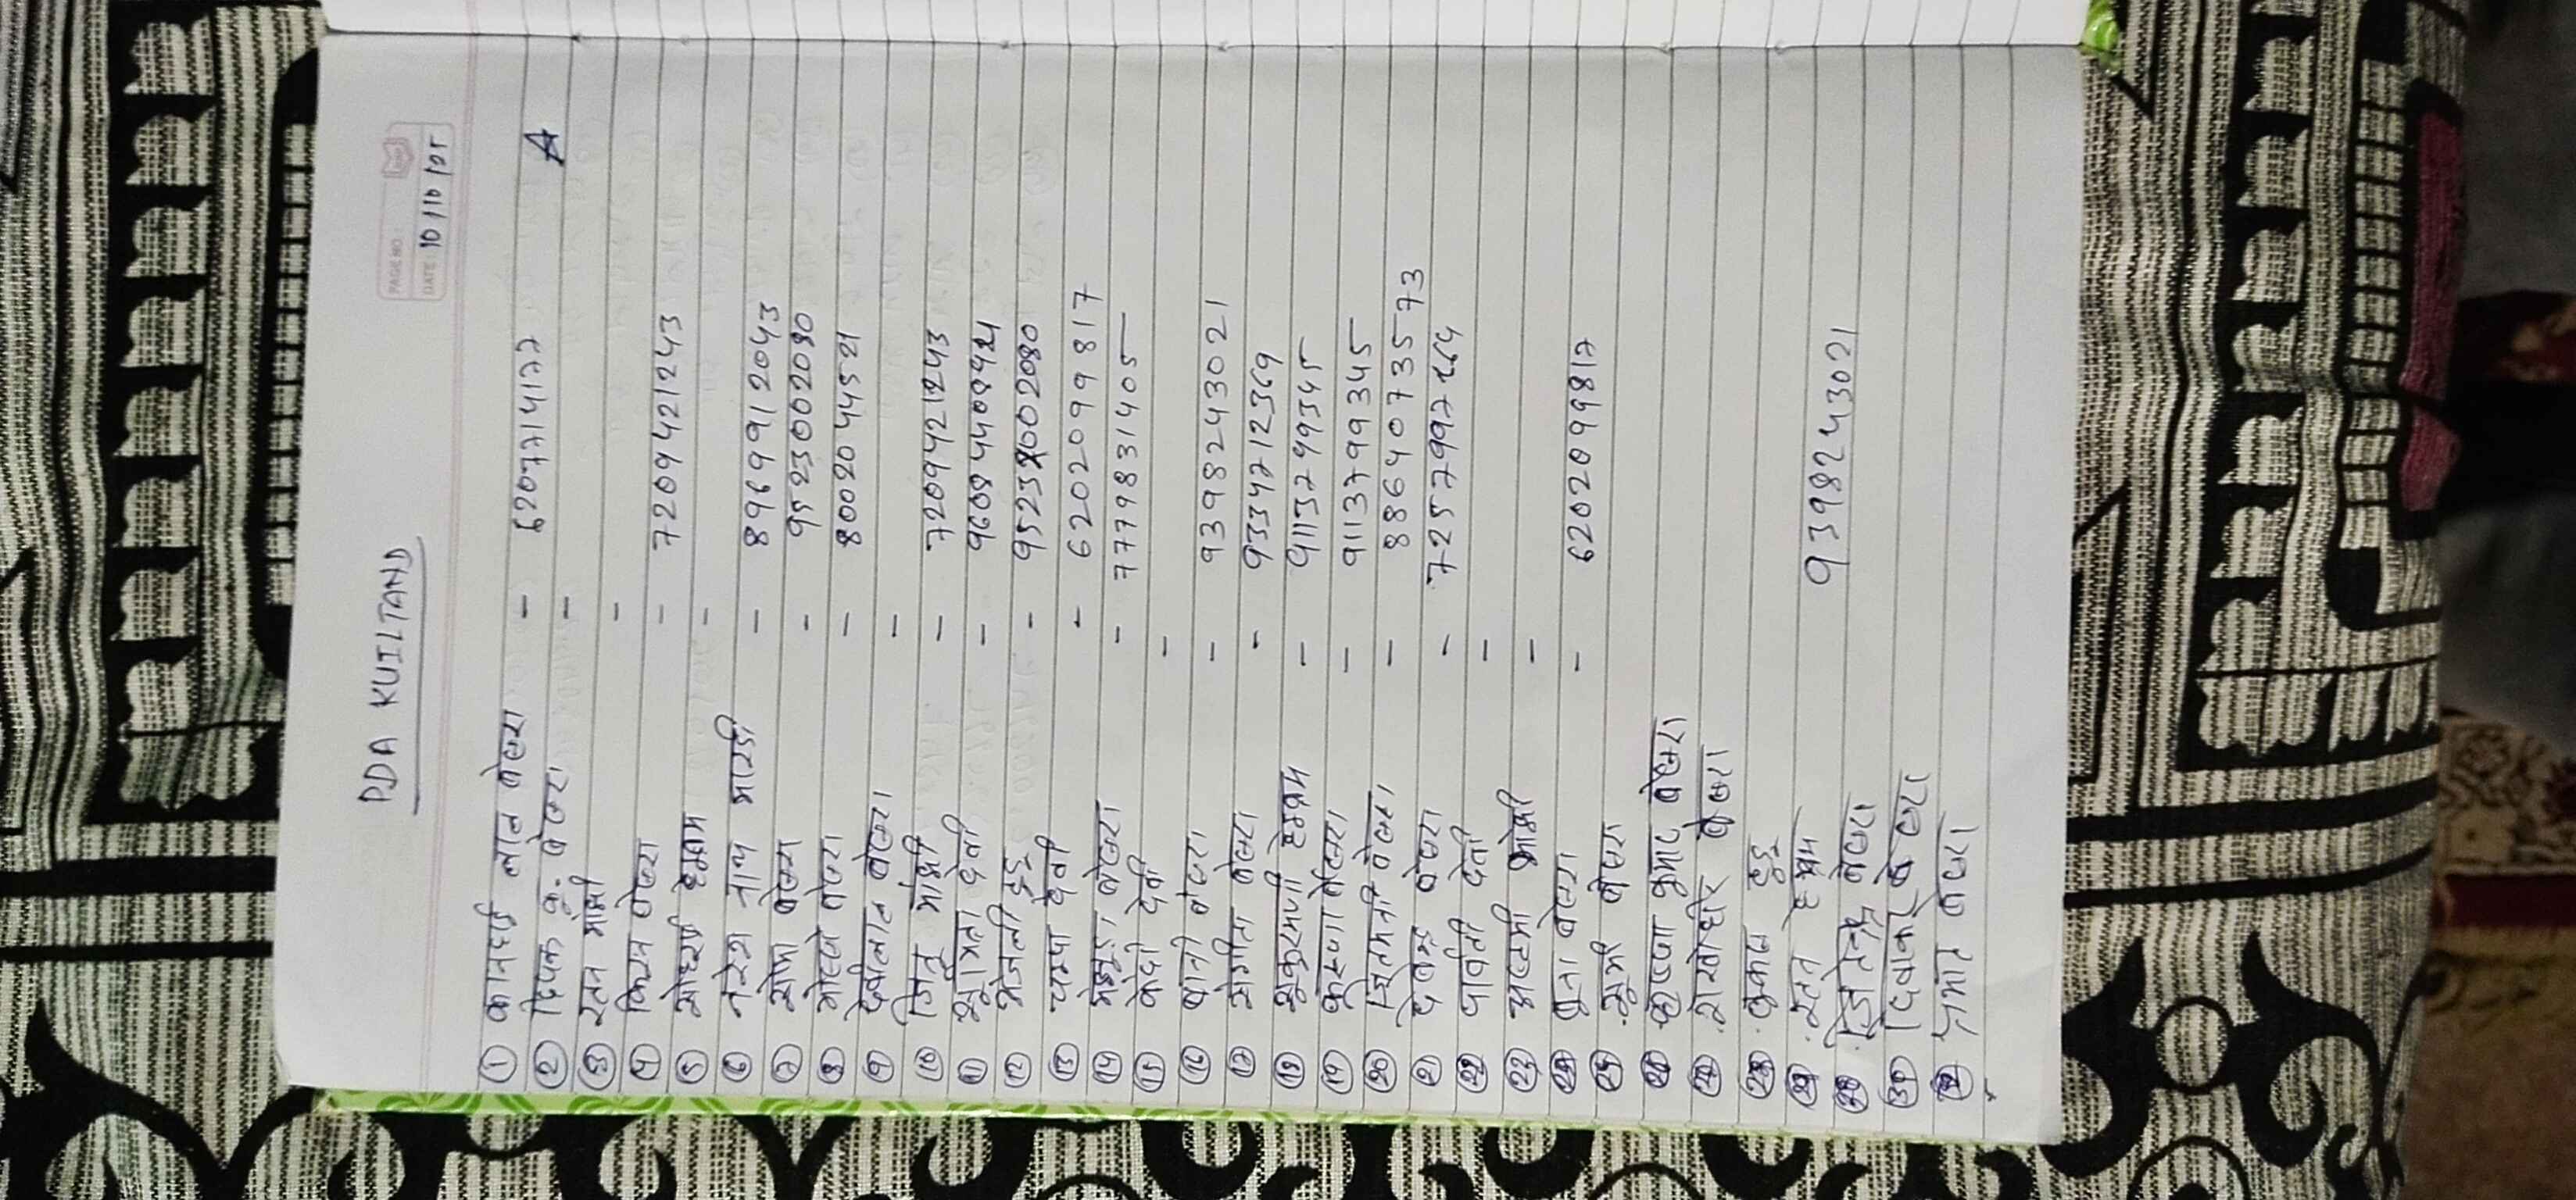 PAGE NO.
DATE: 10/10/25
PDA KUILTAND
① कानदाई लाल बेसरा - 6207714177
② दिपक कु. बेसरा -
③ रतन मांझी -
④ किरन बेसरा - 7209421243
⑤ हेम्ब्रम -
⑥ नरेश नाथ मारडी - 8969912043
⑦ सोम बेसरा - 9523002080
⑧ बेसरा - 8002044521
⑨ देवीलाल बेसरा -
⑩ जितू मांझी - 7209421243
⑪ देवी - 9608440942
⑫ टुडू - 9523002080
⑬ चम्पा देवी - 6202099817
⑭ बेसरा - 7779831405
⑮ देवी -
⑯ बेसरा - 9398243021
⑰ संगीता बेसरा - 9334712369
⑱ सुकुरमणी हेम्ब्रम - 9113799345
⑲ बेसरा - 9113799345
⑳ बेसरा - 8864073573
㉑ देवेन्द्र बेसरा - 7257997264
㉒ पार्वती देवी -
㉓ -
㉔ बेसरा - 6202099817
㉕ बेसरा
㉖ कृष्णा कुमार बेसरा
㉗ बेसरा
㉘ टुडू
㉙ रतन हेम्ब्रम
㉚ जितेन्द्र बेसरा 9398243021
㉛ दिवाकर बेसरा
㉜ बेसरा